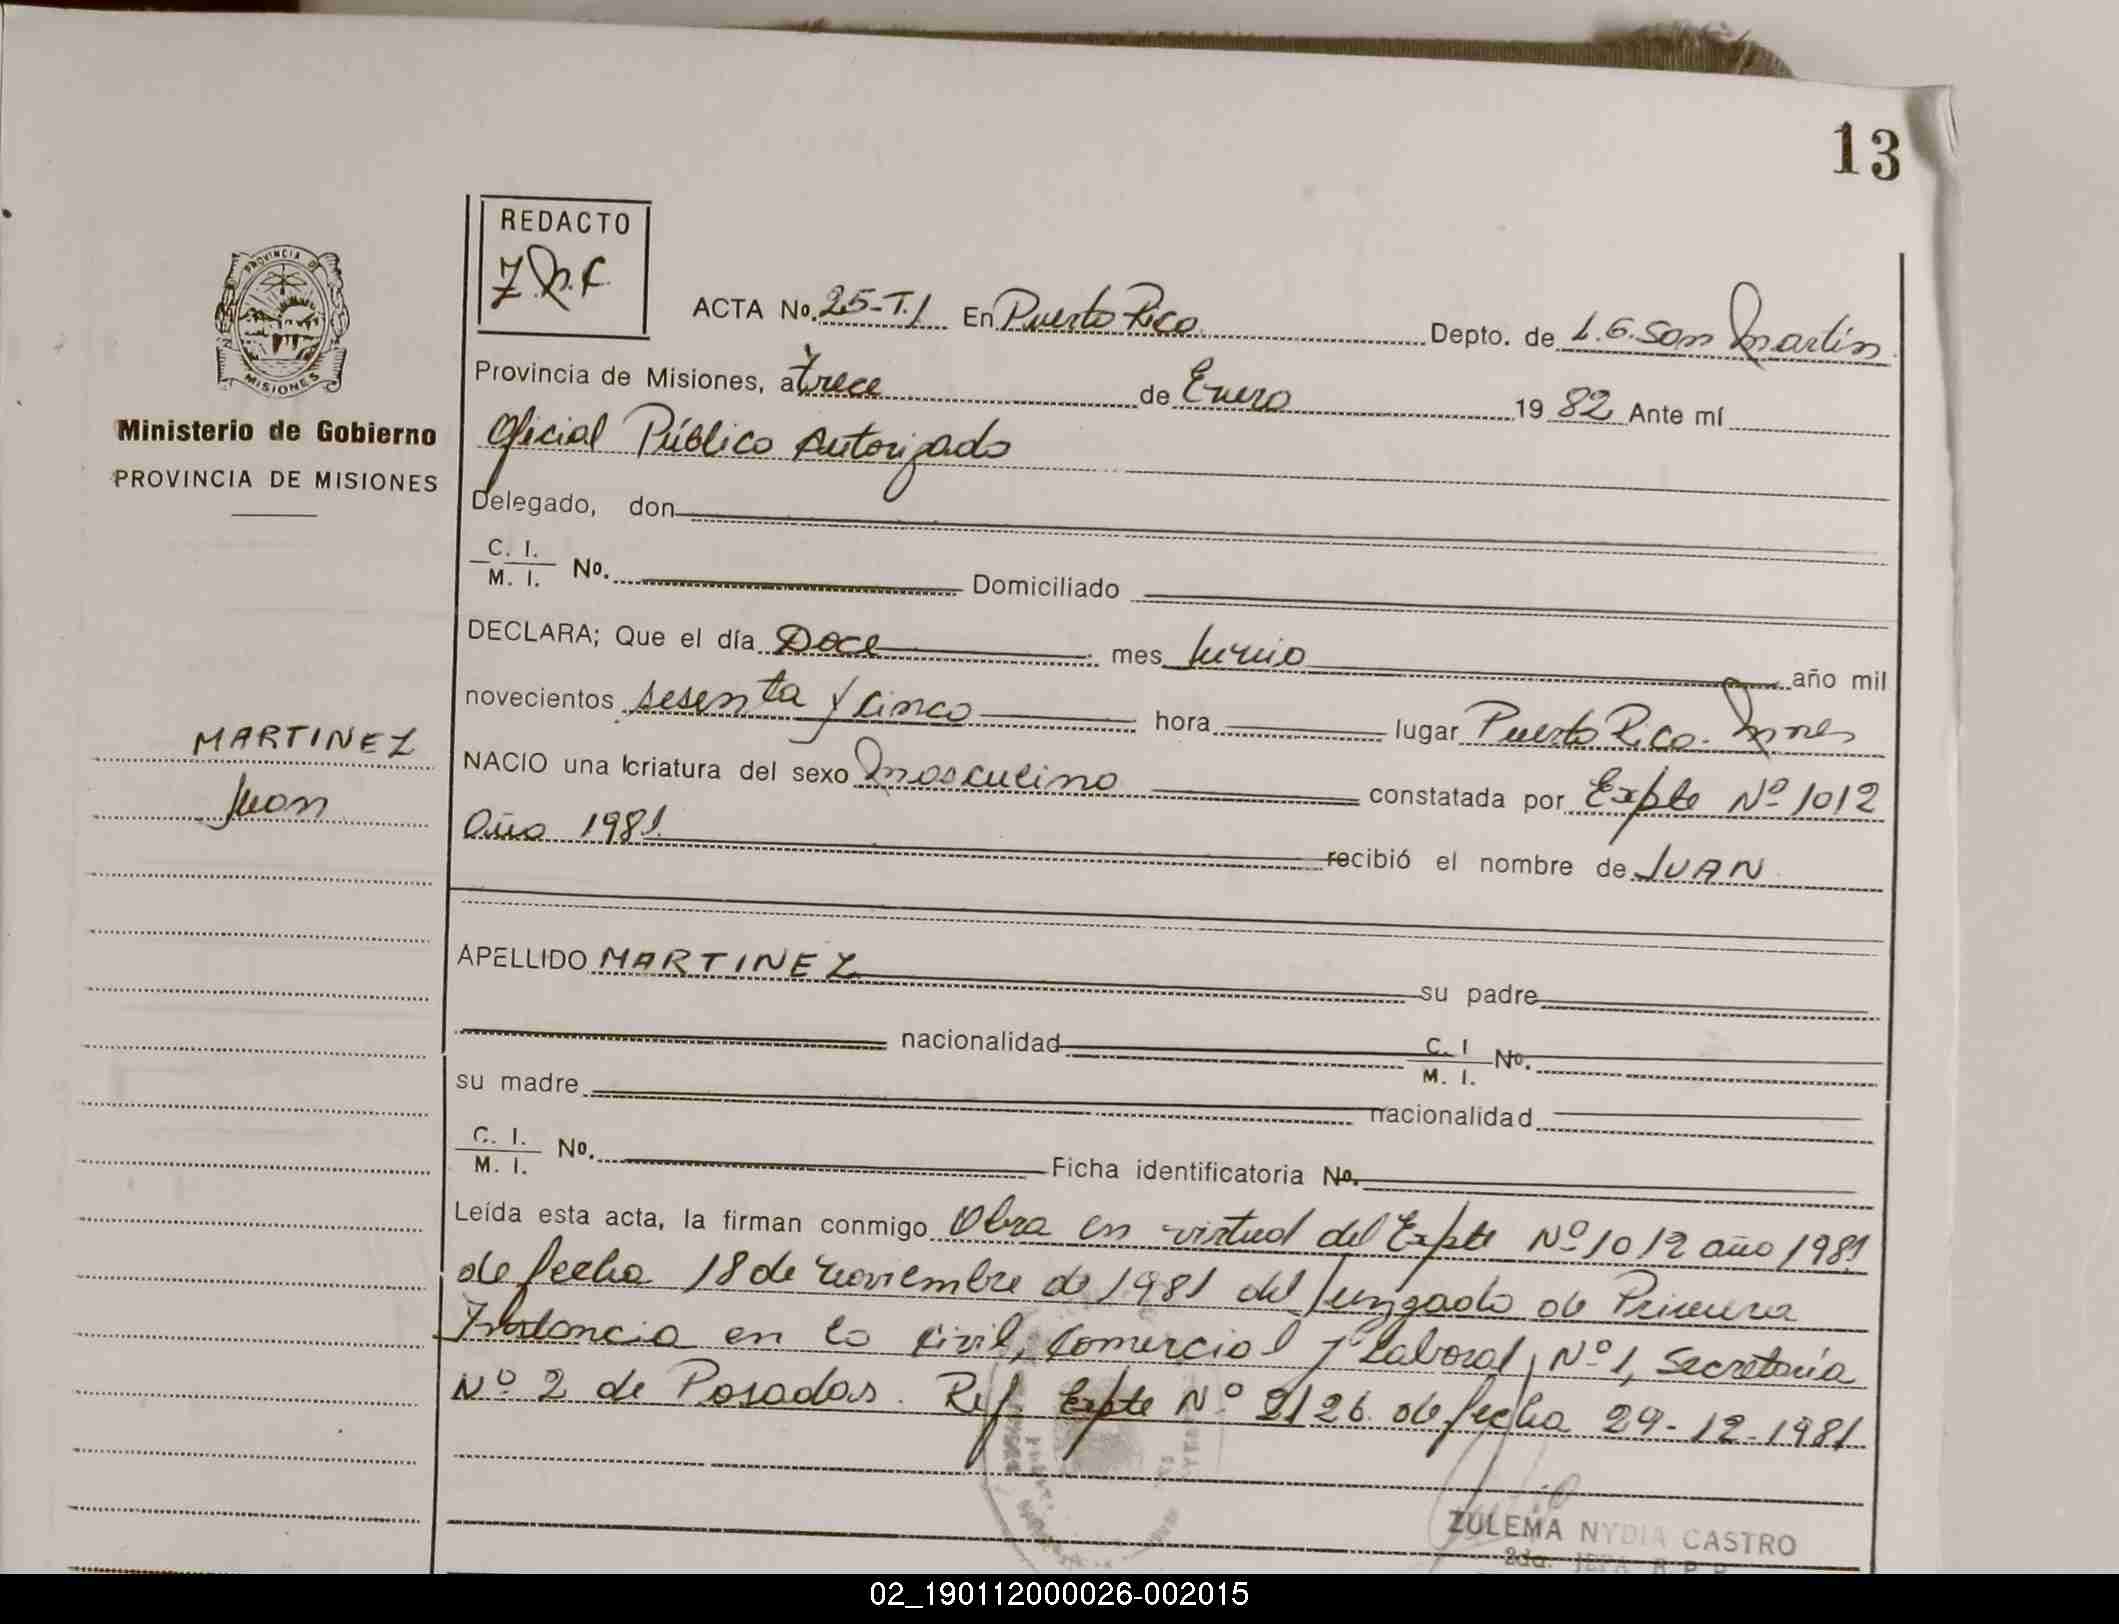 13
REDACTO
Z.N.C.
PROVINCIA DE
MISIONES
Ministerio de Gobierno
PROVINCIA DE MISIONES
ACTA No. 25-T.I En Puerto Rico Depto. de L.G. San Martín
Provincia de Misiones, a trece de Enero 19 82 Ante mí
Oficial Público Autorizado
Delegado, don
C. I.
M. I. No. Domiciliado
DECLARA; Que el día Doce mes Junio año mil
novecientos sesenta y cinco hora lugar Puerto Rico. Mnes
MARTINEZ
Juan
NACIO una criatura del sexo Masculino constatada por Expte Nº 1012
Año 1981 recibió el nombre de JUAN
APELLIDO MARTINEZ su padre
nacionalidad C. I
M. I. No.
su madre nacionalidad
C. I.
M. I. No. Ficha identificatoria No.
Leída esta acta, la firman conmigo Obra en virtud del Expte Nº 1012 año 1981
de fecha 18 de noviembre de 1981 del Juzgado de Primera
Instancia en lo Civil, Comercial y Laboral, Nº 1, Secretaría
Nº 2 de Posadas. Ref Expte Nº 2126 de fecha 29-12-1981
ZULEMA NYDIA CASTRO
2da. JEFA R. P. P.
02_190112000026-002015